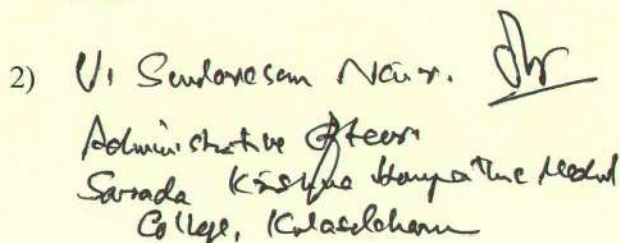 2) V. Sundaresan Nair.
Administrative Officer
Sarada Krishna Homoeopathic Medical
College, Kulasekharam